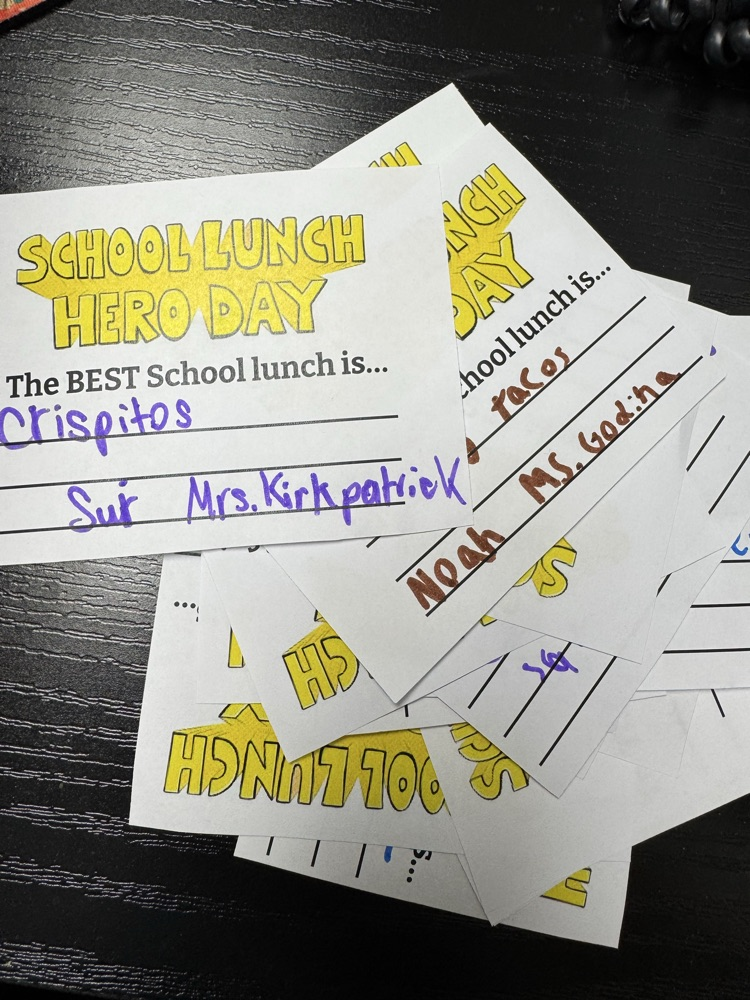 SCHOOL LUNCH
HERO DAY
The BEST School lunch is...
Crispitos
Sur Mrs. Kirkpatrick
NCH
DAY
chool lunch is...
tacos
Noah Ms. Godina
CH
OOL LUNCH
SC
s...